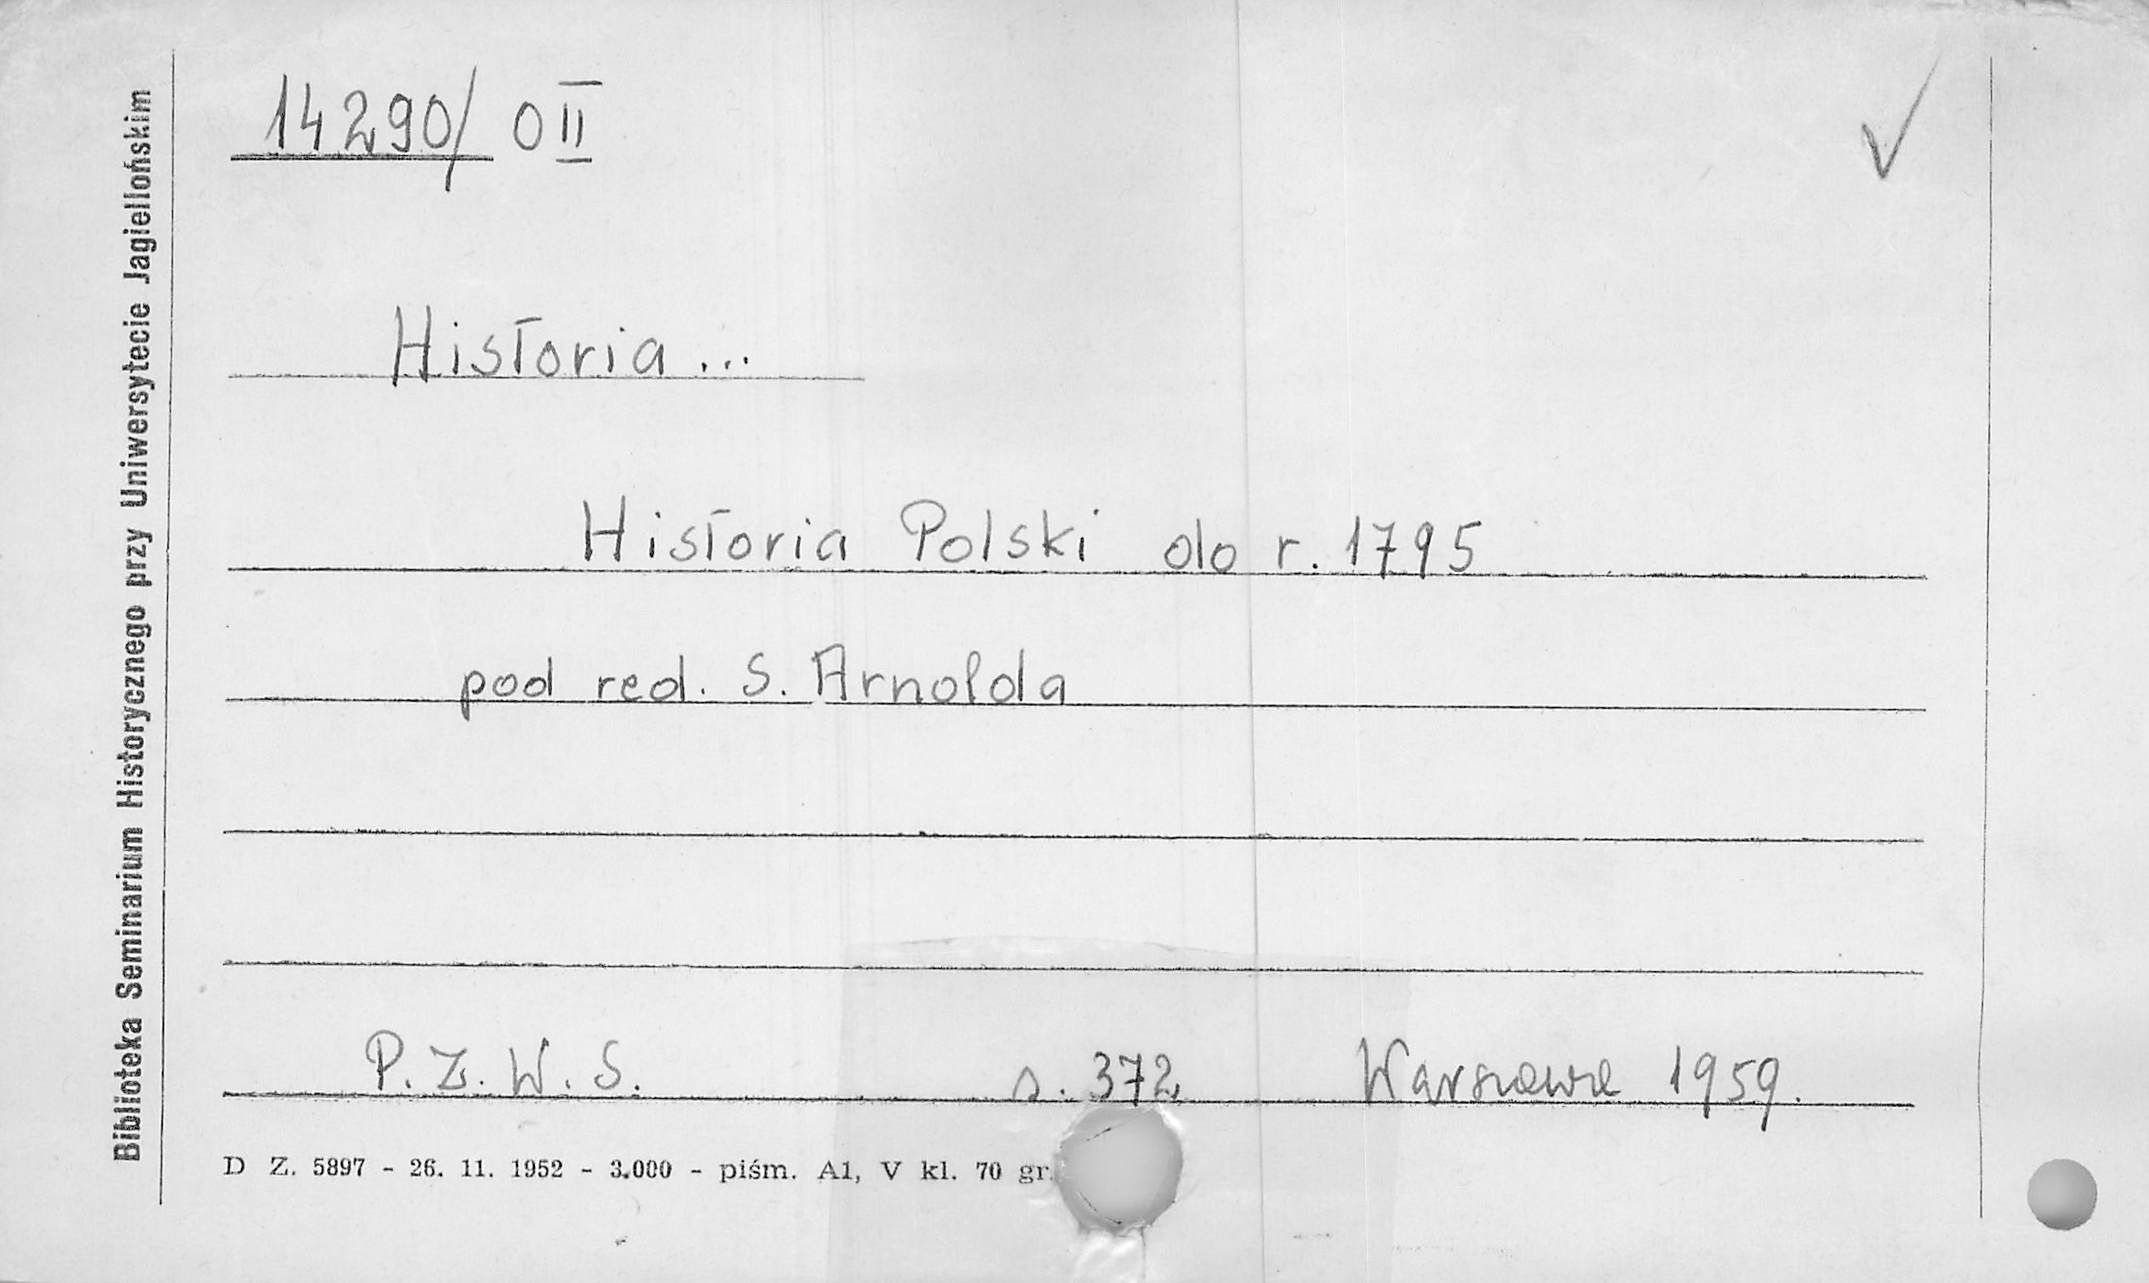 14290/ 0 II
Historia...
Historia Polski do r. 1795
pod red. S. Arnolda
P. Z. W. S. s. 372 Warszawa 1959.
D Z. 5897 - 26. 11. 1952 - 3.000 - piśm. A1, V kl. 70 gr.
Biblioteka Seminarium Historycznego przy Uniwersytecie Jagiellońskim